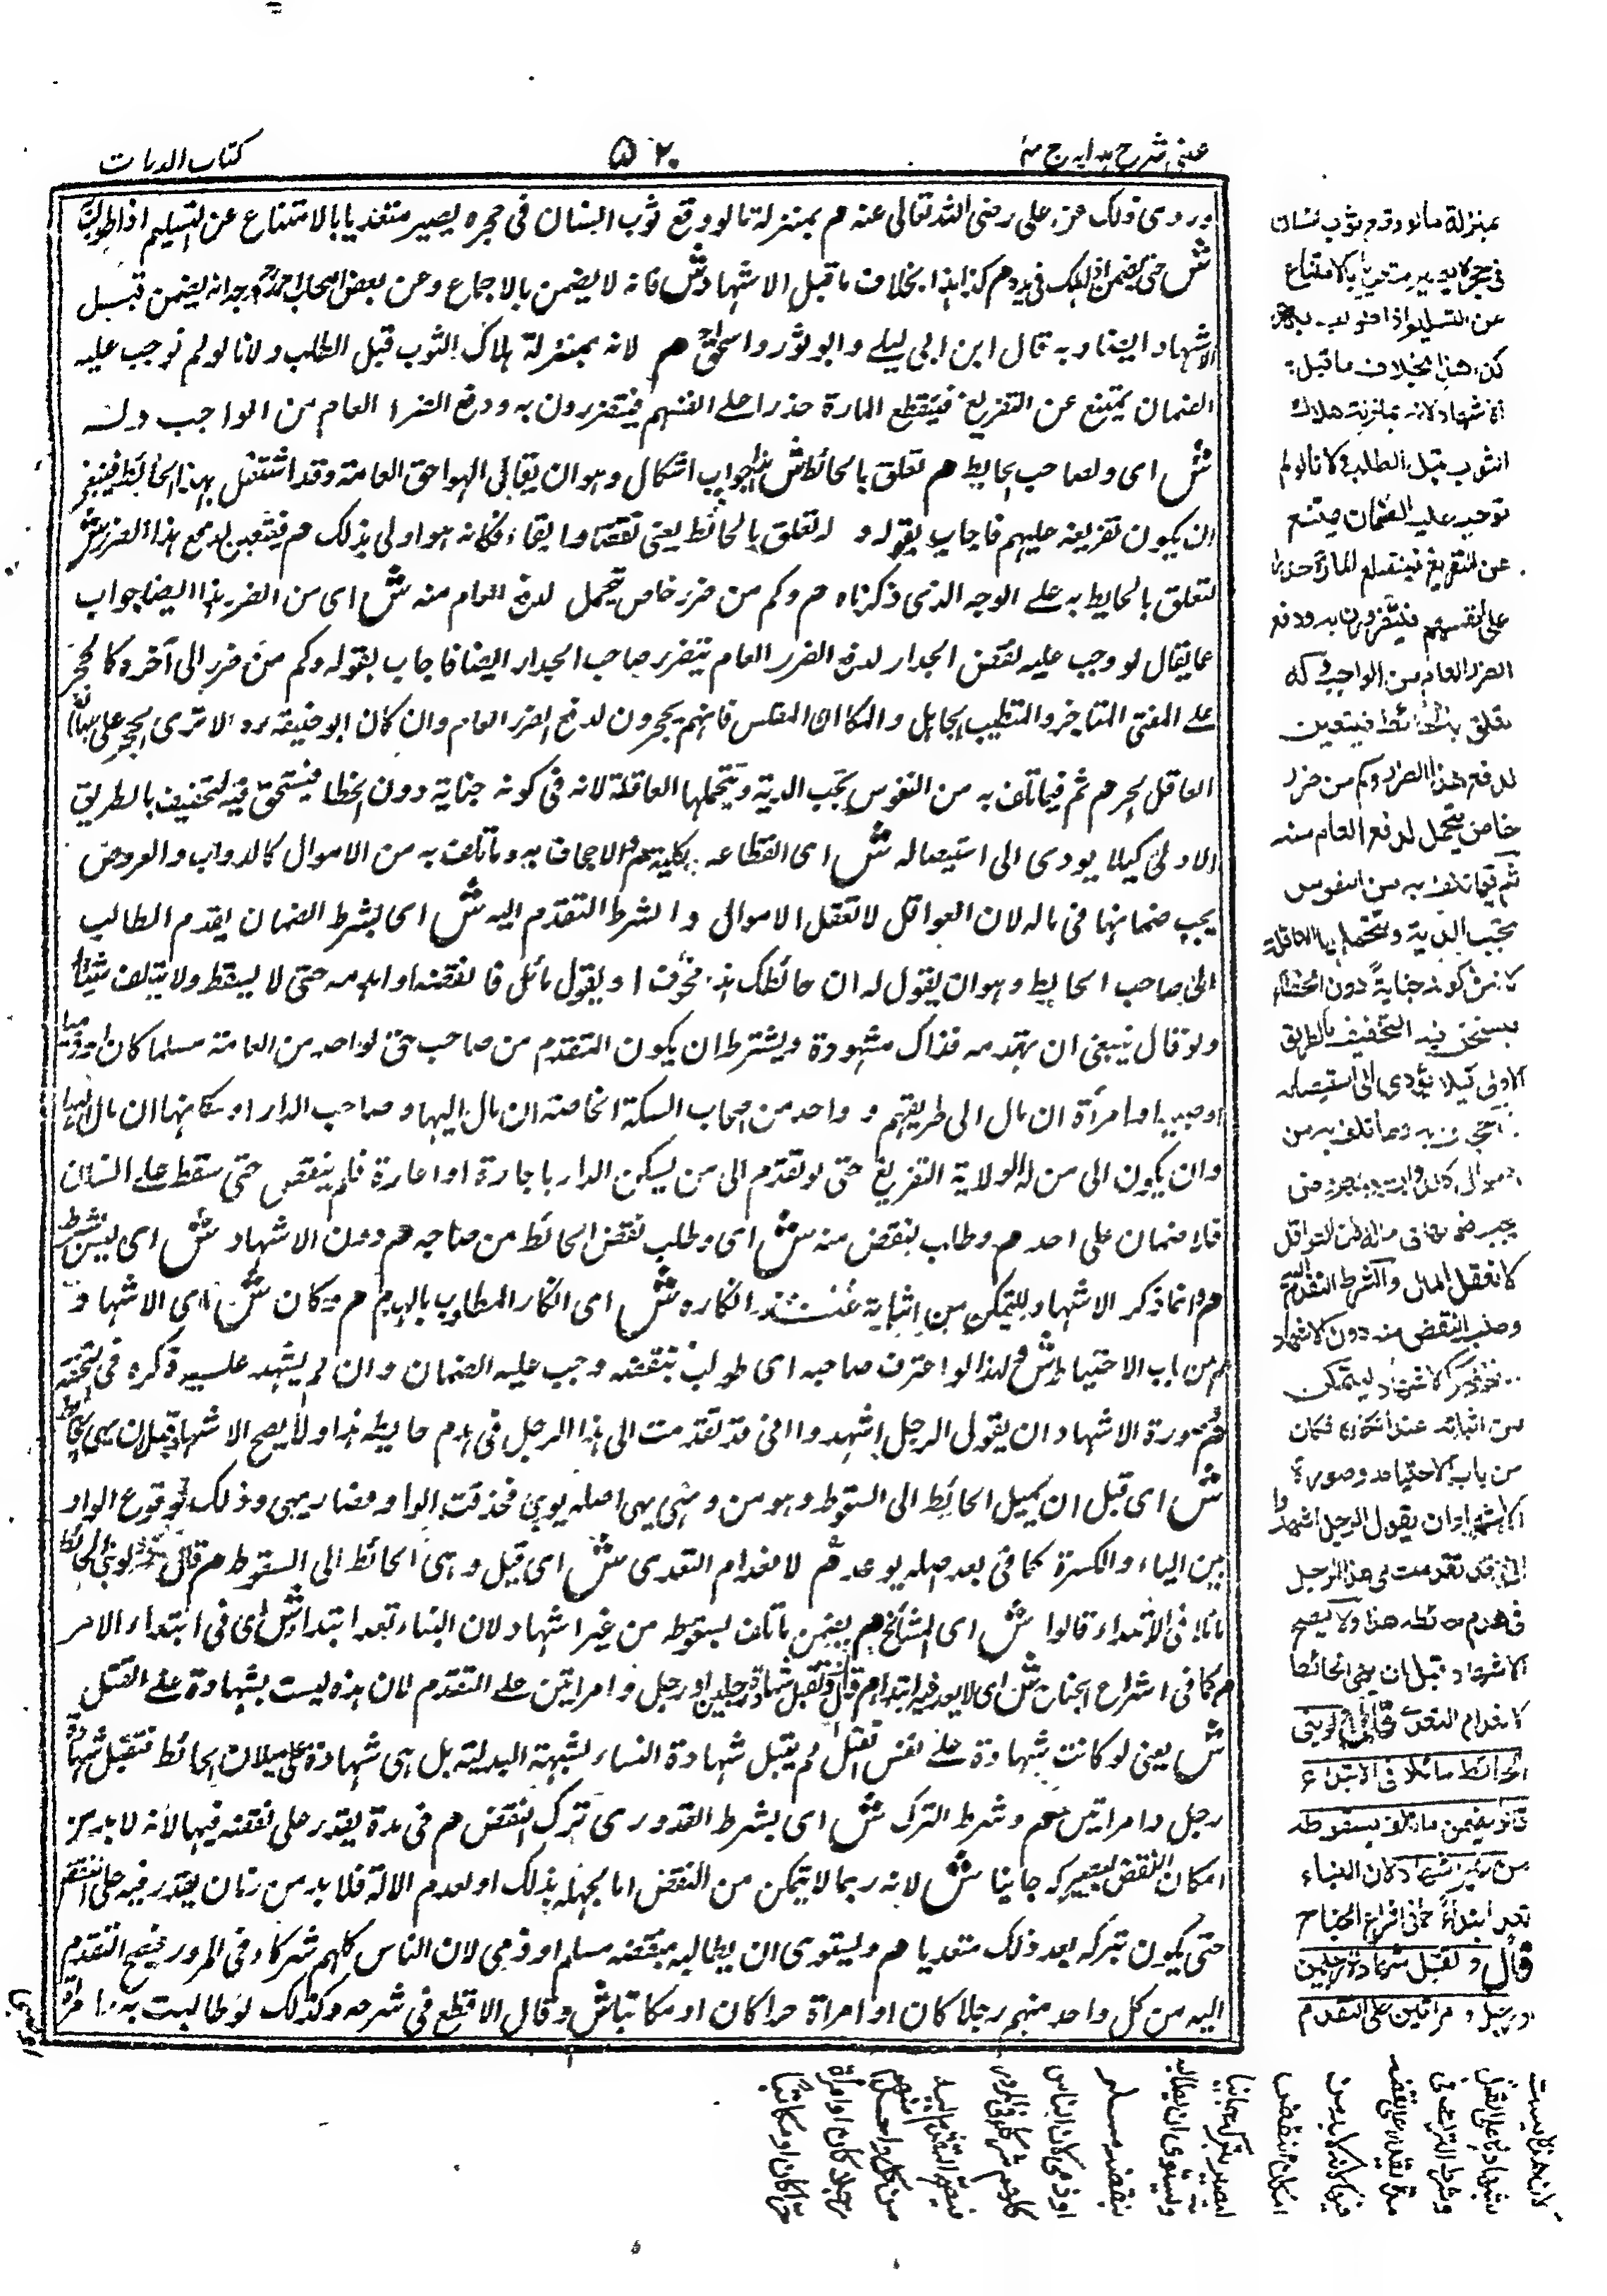 عيني شرح هدايه ج ٤
٥٢٠
كتاب الديات
وروى ذلك عن على رضى الله تعالى عنه هم بمنزلة ما لو وقع ثوب انسان فى حجره يصير متعديا بالامتناع عن التسليم اذا طولب
ش حتى يضمن اذا هلك فى يده هم كذا هذا بخلاف ما قبل الاشهاد ش فانه لا يضمن بالاجماع وعن بعض اصحاب احمد انه يضمن قبل
الاشهاد ايضا وبه قال ابن ابى ليلى وابو ثور واسحق هم لانه بمنزلة هلاك الثوب قبل الطلب ولانا لو لم نوجب عليه
الضمان يمتنع عن التفريغ فينقطع المارة حذرا على انفسهم فيتضررون به ودفع الضرر العام من الواجب وله
ش اى ولصاحب الحايط هم تعلق بالحائط ش هذا جواب اشكال وهو ان يقال الهوا حق العامة وقد اشتغل بهذا الحائط فينبغى
ان يكون تفريغه عليهم فاجاب بقوله وله تعلق بالحائط يعنى نقضا وابقاء فكانه هو اولى بذلك هم فيتعين لدفع هذا الضرر ش
لتعلق بالحايط به على الوجه الذى ذكرناه هم وكم من ضرر خاص يتحمل لدفع العام منه ش اى من الضرر هذا ايضا جواب
عما يقال لو وجب عليه نقض الجدار لدفع الضرر العام يتضرر صاحب الجدار ايضا فاجاب بقوله وكم من ضرر الى آخره كالحجر
على المفتى الماجن والمتطبب الجاهل والمكارى المفلس فانهم يحجرون لدفع الضرر العام وان كان ابو حنيفة رح لا يرى الحجر على
العاقل الحر هم ثم فيما تلف به من النفوس يجب الدية ويتحملها العاقلة لانه فى كونه جناية دون الخطا فيستحق فيه التخفيف بالطريق
الاولى كيلا يودى الى استيصاله ش اى انقطاعه بكلية هم والاجحاف به وما تلف به من الاموال كالدواب والعروض
يجب ضمانها فى ماله لان العواقل لا تعقل الاموال والشرط التقدم اليه ش اى بشرط الضمان تقدم الطالب
الى صاحب الحايط وهو ان يقول له ان حائطك هذا مخوف او يقول مائل فانقضه او اهدمه حتى لا يسقط ولا يتلف شيئا
ولو قال ينبغى ان تهدمه فذاك مشهودة ويشترط ان يكون التقدم من صاحب حق لواحد من العامة مسلما كان او ذميا
او صبيا او امرأة ان مال الى طريقهم و واحد من اصحاب السكة الخاصة ان مال اليها وصاحب الدار او سكانها ان مال اليها
وان يكون الى من له ولاية التفريغ حتى لو تقدم الى من يسكن الدار باجارة او اعارة فلم ينقض حتى سقط على انسان
فلا ضمان على احد هم وطلب نقض منه ش اى وطلب نقض الحائط من صاحبه هم دون الاشهاد ش اى ليس بشرط
هم وانما ذكر الاشهاد ليتمكن من اثباته عند انكاره ش اى انكار المطلوب بالهدم هم فكان ش اى الاشهاد
هم من باب الاحتياط ش ولهذا لو اعترف صاحبه اى طولب بنقضه وجب عليه الضمان وان لم يشهد عليه ذكره فى التحفة
هم وصورة الاشهاد ان يقول الرجل اشهدوا انى قد تقدمت الى هذا الرجل فى هدم حايطه هذا ولا يصح الاشهاد قبل ان يهى الحائط
ش اى قبل ان يميل الحائط الى السقوط وهو من وهى يهى اصله يوهى فحذفت الواو فصار يهى وذلك لوقوع الواو
بين الياء والكسرة كما فى يعد اصله يوعد هم لانعدام التعدى ش اى قبل وهى الحائط الى السقوط هم قال ولو بنى الحائط
مائلا فى الابتداء قالوا ش اى المشائخ هم يضمن ما تلف بسقوطه من غير اشهاد لان البناء تعد ابتداء ش اى فى ابتداء الامر
هم كما فى اشراع الجناح ش اى لا بعد فيه ابتداء هم قال وتقبل شهادة رجلين او رجل وامراتين على التقدم لان هذه ليست بشهادة على القتل
ش يعنى لو كانت شهادة على نفس القتل لم يقبل شهادة النساء لشبهة البدلية بل هى شهادة على ميلان الحائط فتقبل شهادة
رجل وامراتين هم وشرط الترك ش اى بشرط القدورى ترك النقض هم فى مدة يقدر على نقضه فيها لانه لا بد من
امكان النقض ليصير بتركه جانيا ش لانه ربما لا يتمكن من النقض اما لجهله بذلك او لعدم الالة فلا بد من زمان يقدر فيه على النقض
حتى يكون بتركه بعد ذلك متعديا هم ويستوى ان يطالبه بنقضه مسلم او ذمى لان الناس كلهم شركاء فى المرور فيصح التقدم
اليه من كل واحد منهم رجلا كان او امراة حرا كان او مكاتبا ش وقال الاقطع فى شرحه وكذلك لو طالبت به امرأة
بمنزلة ما لو وقع ثوب انسان
فى حجره يصير متعديا بالامتناع
عن التسليم اذا طولب به
كذا هذا بخلاف ما قبل
الاشهاد لانه بمنزلة هلاك
الثوب قبل الطلب ولانا لو لم
نوجب عليه الضمان يمتنع
عن التفريغ فينقطع المارة حذرا
على انفسهم فيتضررون به ودفع
الضرر العام من الواجب وله
تعلق بالحائط فيتعين
لدفع هذا الضرر وكم من ضرر
خاص يتحمل لدفع العام منه
ثم فيما تلف به من النفوس
تجب الدية وتتحملها العاقلة
لانه فى كونه جناية دون الخطاء
فيستحق فيه التخفيف بالطريق
الاولى كيلا يؤدى الى استيصاله
والاجحاف به وما تلف به من
الاموال كالدواب والعروض
يجب ضمانها فى ماله لان العواقل
لا تعقل المال والشرط التقدم اليه
وطلب النقض منه دون الاشهاد
وانما ذكر الاشهاد ليتمكن
من اثباته عند انكاره فكان
من باب الاحتياط وصورة
الاشهاد ان يقول الرجل اشهدوا
انى قد تقدمت الى هذا الرجل
فى هدم حائطه هذا ولا يصح
الاشهاد قبل ان يهى الحائط
لانعدام التعدى قال ولو بنى
الحائط مائلا فى الابتداء
قالوا يضمن ما تلف بسقوطه
من غير اشهاد لان البناء
تعد ابتداء كما فى اشراع الجناح
قال وتقبل شهادة رجلين
او رجل وامراتين على التقدم
لان هذه ليست
بشهادة على القتل
وشرط الترك فى
مدة يقدر على نقضه
فيها لانه لا بد من
امكان النقض
ليصير بتركه جانيا
ويستوى ان يطالبه
بنقضه مسلم
او ذمى لان الناس
كلهم شركاء فى المرور
فيصح التقدم اليه
من كل واحد منهم
رجلا كان او امرأة
حرا كان او مكاتبا